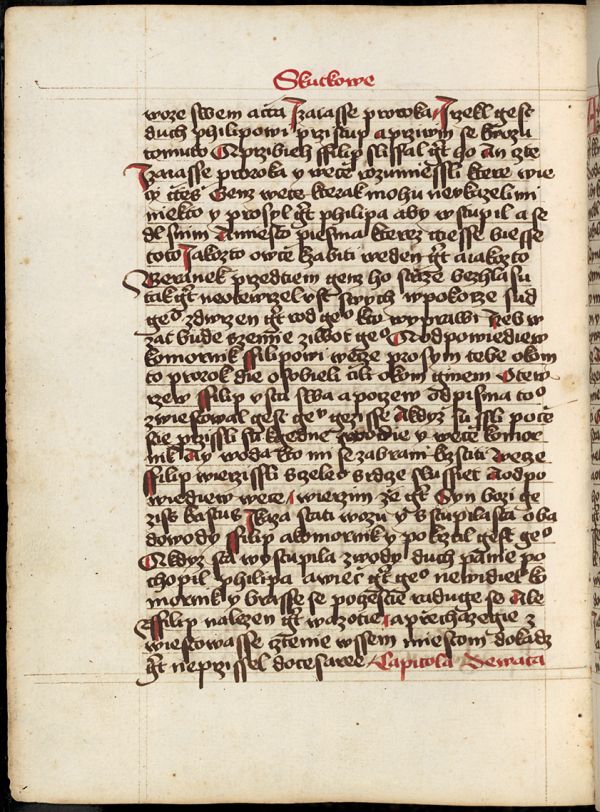 Skutkowe
woze swem a ctta Izaiasse proroka Irzekl gest
duch philipowi przistup a prziwin se k wozu
tomuto A przibieh ffilip slissal gt ho an czte
Izaiasse proroka y wece rozumiessli ktere wie
cy cztes Genz wece kterak mohu neukazeli mi
niekto y prosyl gt philipa aby wstupil a se
dl s nim A miesto piesma kterez cztiesse biesse
toto Jakozto owce k zabiti weden gt a iakozto
Beranek przedtiem genz ho strzize bez hlasu
tak gt neotewrzel vst swych w pokorze sud
geo zdwizen gt rod geo kto wyprawi neb w
zat bude z zemie ziwot geo A odpowiediew
komornik ffilipowi wece prosym tebe o kom
to prorok die o sobieli cili o kom ginem Otew
rzew ffilip vsta swa a poczew od pisma too
zwiestowal gest geo gezisse A kdyz su ssli po ce
stie przissli su k gedne wodie y wece komor
nik ay woda kto mi se zabrani krztiti wece
ffilip wierzissli z celeo srdce slussiet A odpo
wiediew wece wierzim ze gt Syn bozi ge
ziss kristus I kaza stati wozu y sstupilasta oba
do wody ffilip a komornik y pokrztil gest geo
A kdyz sta wystupila z wody duch panie po
chopil philipa a wiec gt geo newidiel ko
mornik y brasse se po czestie raduge se Ale
ffilip nalezen gt w azotie a prochazegie z
wiestowasse cztenie wssem miestom dokadz
gt neprzissel do cesaree Capitola Dewata